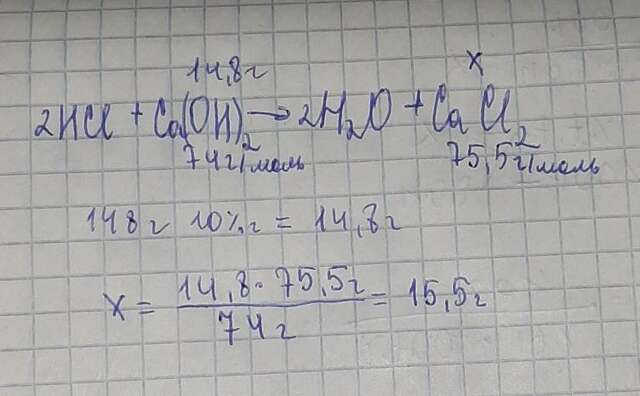 14,8г x
2HCl + Ca(OH)₂ → 2H₂O + CaCl₂
74г/моль 75,5г/моль
148г 10%г = 14,8г
x = 14,8 · 75,5г / 74г = 15,5г